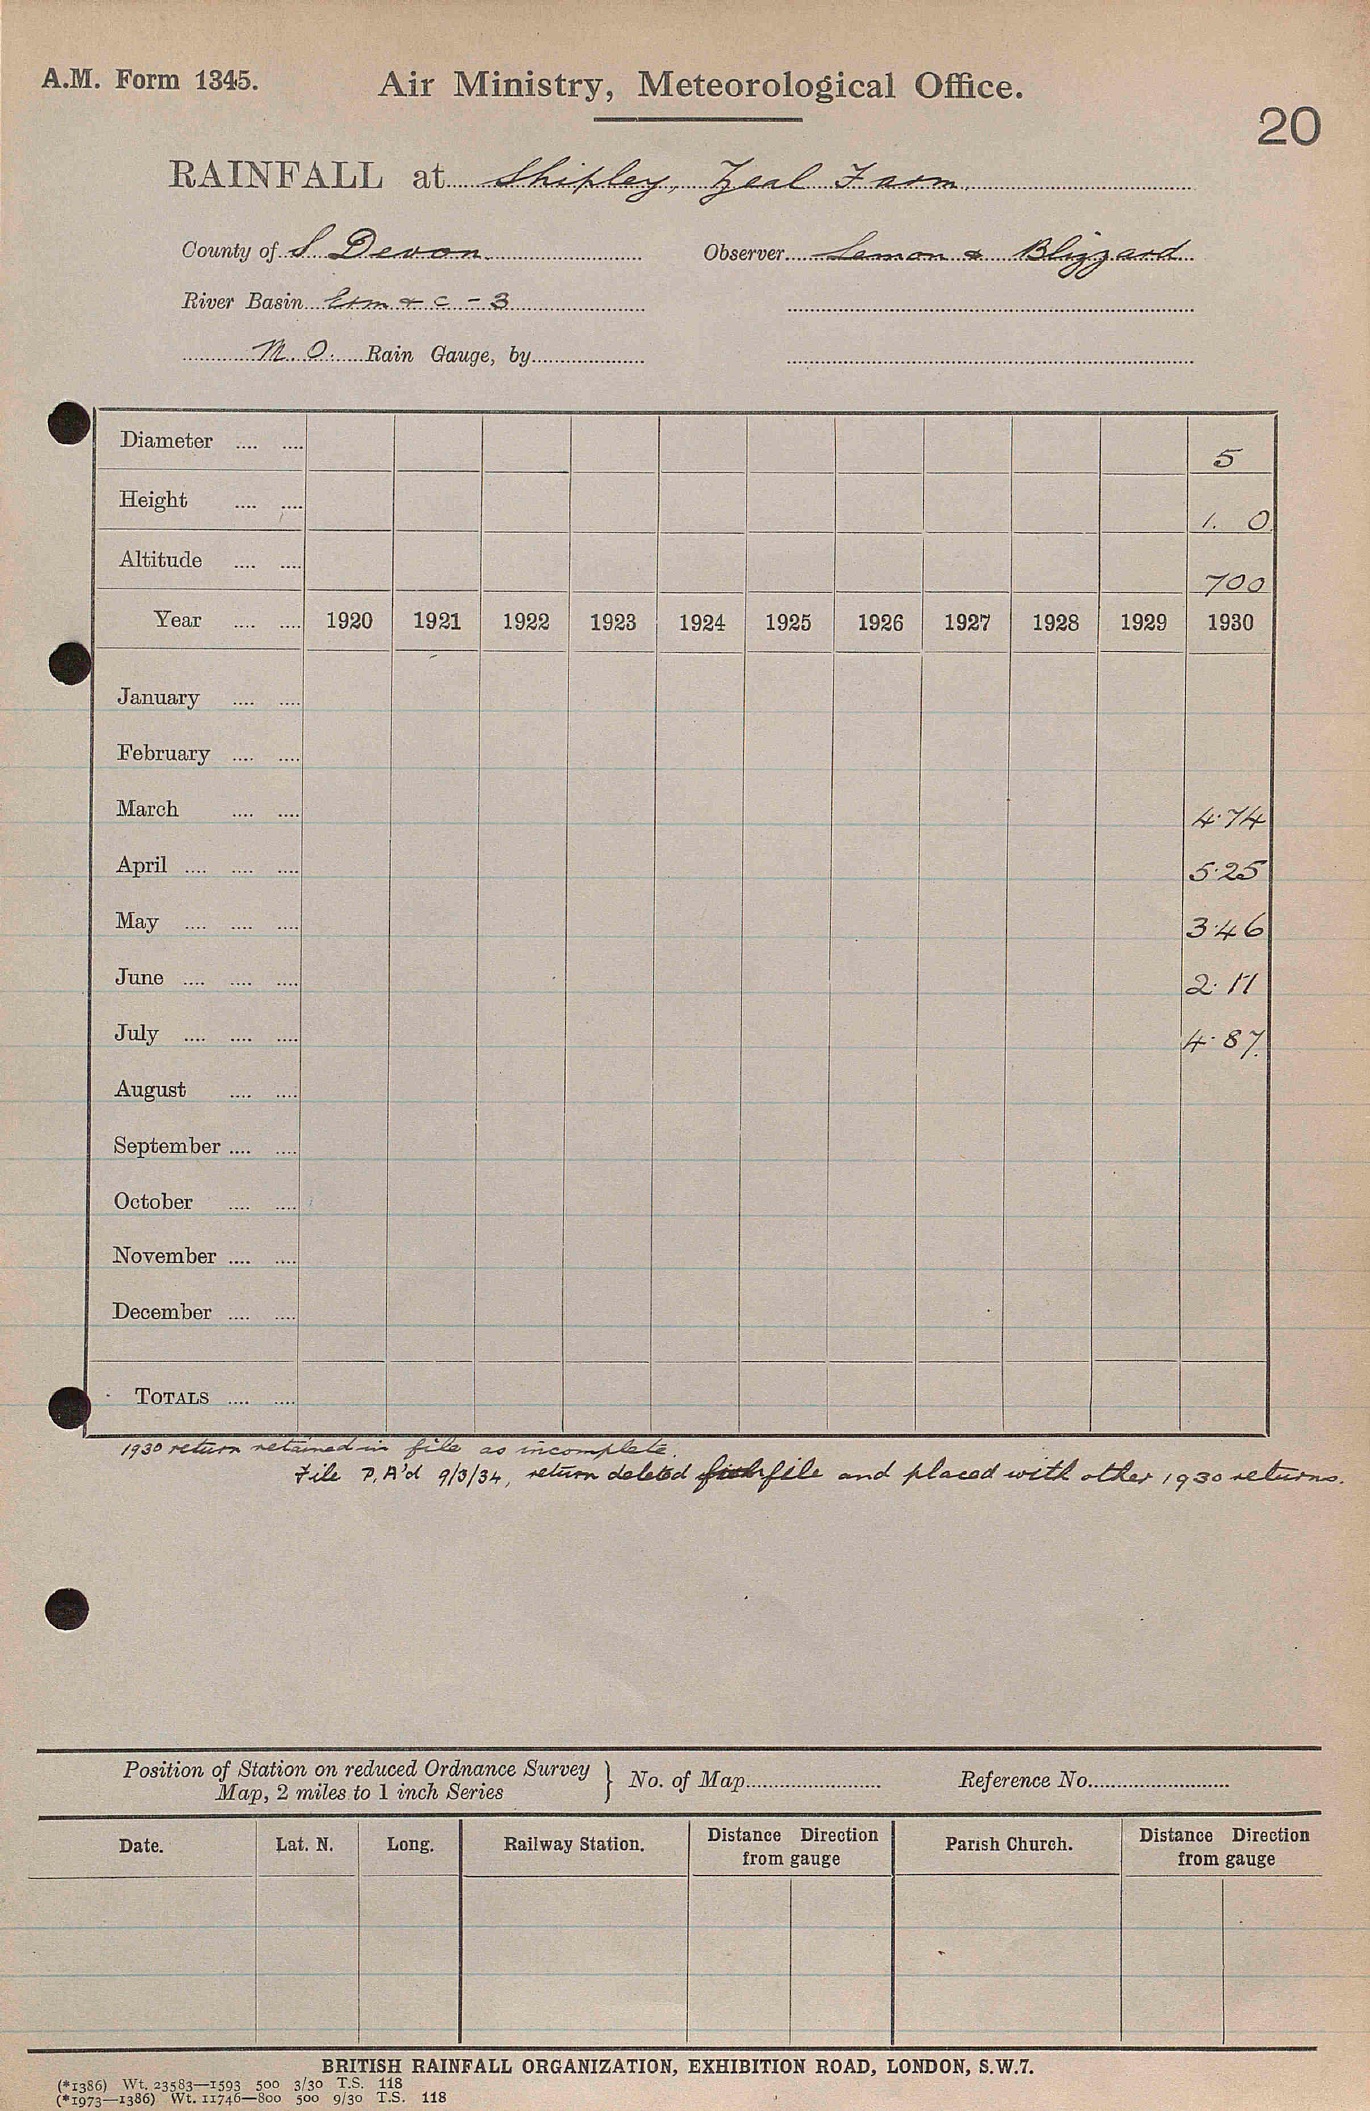 A.M. Form 1345.
Air Ministry, Meteorological Office.
20
RAINFALL at Shipley, Zeal Farm.
County of S Devon. Observer Lemon & Blizzard
River Basin Erm &c - 3
M. O. Rain Gauge, by
Diameter .... .... 5
Height .... .... 1. 0.
Altitude .... .... 700
Year .... .... 1920 1921 1922 1923 1924 1925 1926 1927 1928 1929 1930
January .... ....
February .... ....
March .... .... 4.74
April .... .... .... 5.25
May .... .... .... 3.46
June .... .... .... 2.17
July .... .... .... 4.87.
August .... ....
September .... ....
October .... ....
November .... ....
December .... ....
TOTALS .... ....
1930 return retained in file as incomplete.
File P.A'd 9/3/34, return deleted file and placed with other 1930 returns.
Position of Station on reduced Ordnance Survey
Map, 2 miles to 1 inch Series } No. of Map Reference No.
Date. Lat. N. Long. Railway Station. Distance Direction from gauge Parish Church. Distance Direction from gauge
BRITISH RAINFALL ORGANIZATION, EXHIBITION ROAD, LONDON, S.W.7.
(*1386) Wt. 23583—1593 500 3/30 T.S. 118
(*1973—1386) Wt. 11746—800 500 9/30 T.S. 118